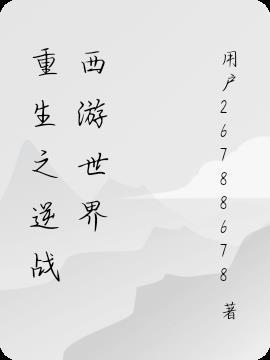 重生之逆战
西游世界
用户26788678 著